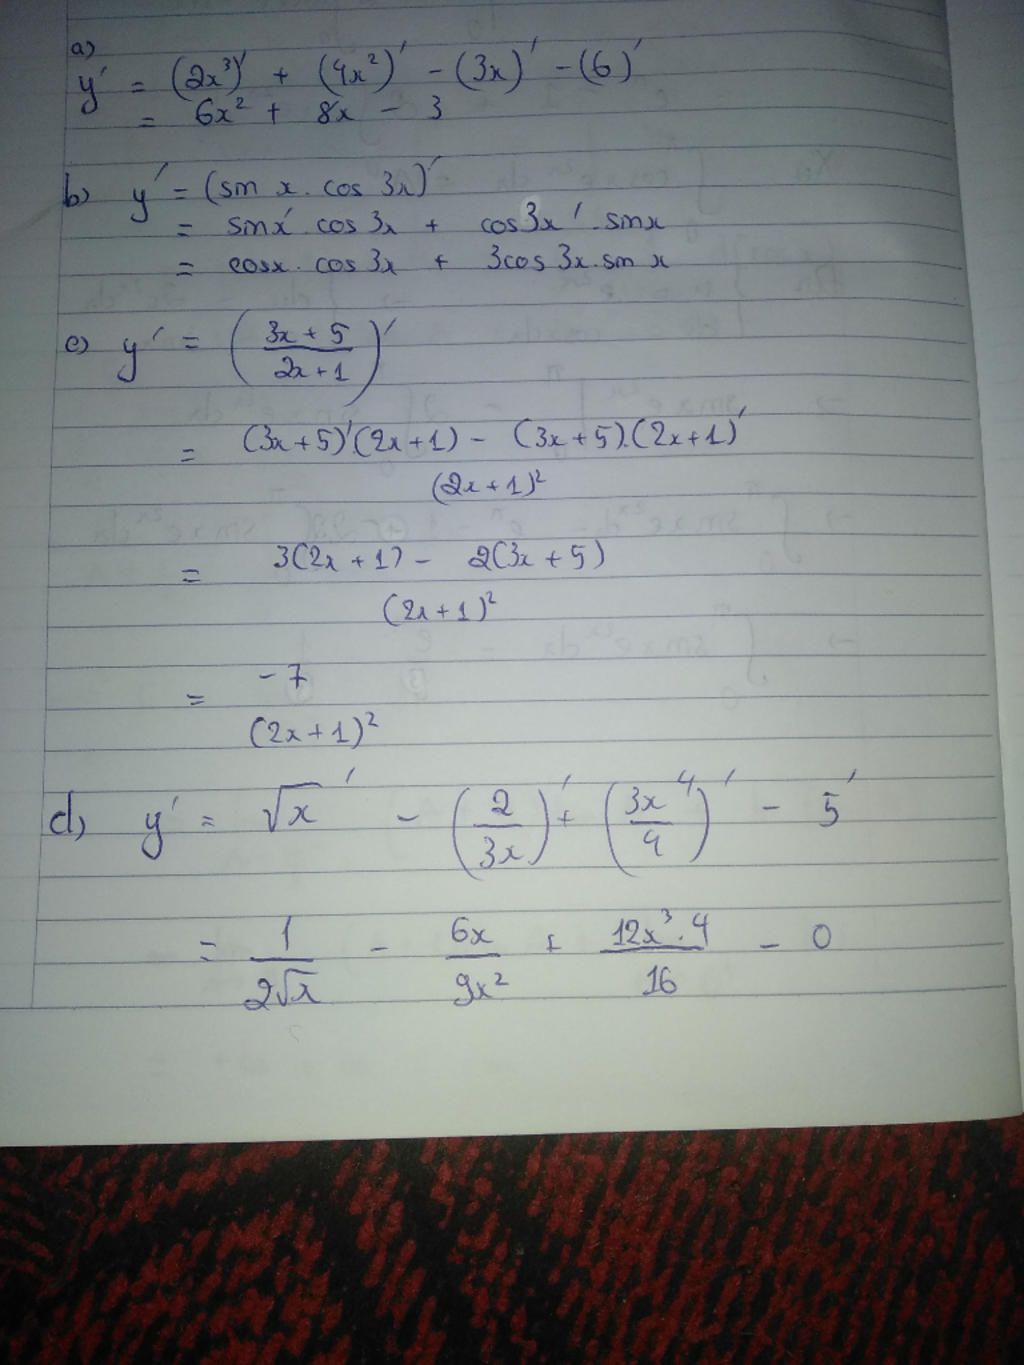 a)
y' = (2x³)' + (4x²)' - (3x)' - (6)'
= 6x² + 8x - 3
b) y' = (sin x . cos 3x)'
= sinx' . cos 3x + cos3x' . sinx
= cosx . cos 3x + 3cos 3x . sin x
c) y' = ((3x + 5)/(2x + 1))'
= ((3x + 5)'.(2x + 1) - (3x + 5).(2x + 1)')/(2x + 1)²
= (3(2x + 1) - 2(3x + 5))/(2x + 1)²
= -7/(2x + 1)²
d) y' = √x' - (2/3x)' + (3x⁴/4)' - 5'
= 1/2√x - 6x/9x² + 12x³.4/16 - 0